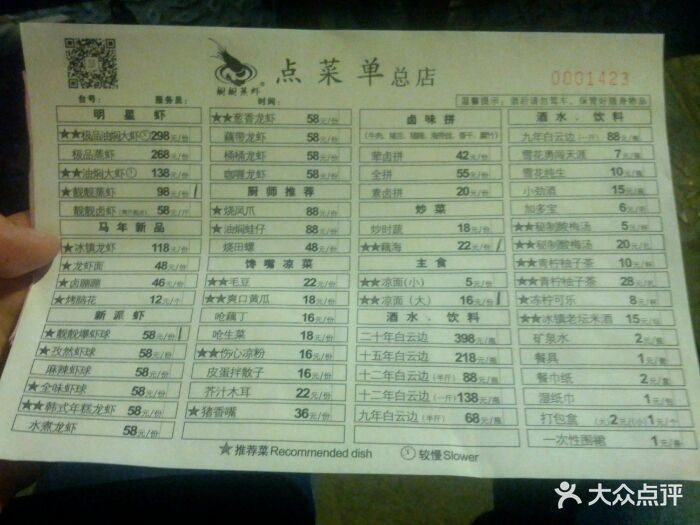 靓靓蒸虾
点菜单总店
0001423
台号：
服务员：
时间：
温馨提示：酒后请勿驾车、保管好随身物品
明星虾
★★极品油焖大虾 298元/份
极品蒸虾 268元/份
★★油焖大虾 138元/份
★靓靓蒸虾 98元/份
靓靓卤虾 58元/斤
马年新品
★冰镇龙虾 118元/份
★龙虾面 48元/份
★卤蹦蹦 46元/份
★烤肠花 12元/个
新派虾
★靓靓爆虾球 58元/份
★孜然虾球 58元/份
麻辣虾球 58元/份
★全味虾球 58元/份
★★韩式年糕龙虾 58元/份
水煮龙虾 58元/份
★★葱香龙虾 58元/份
藕带龙虾 58元/份
桶桶龙虾 58元/份
咖喱龙虾 58元/份
厨师推荐
★烧凤爪 88元/份
★油焖蛙仔 88元/份
烧田螺 48元/份
馋嘴凉菜
★★毛豆 22元/份
★★爽口黄瓜 18元/份
呛藕丁 16元/份
呛生菜 18元/份
★★伤心凉粉 16元/份
皮蛋拌馓子 16元/份
芥汁木耳 22元/份
★猪香嘴 36元/份
卤味拼
荤卤拼 42元/份
全拼 55元/份
素卤拼 20元/份
炒菜
炒时蔬 18元/份
★★藕海 22元/份
主食
★★凉面(小) 5元/份
★★凉面（大） 16元/份
酒水、饮料
二十年白云边 398元/瓶
十五年白云边 218元/瓶
十二年白云边(半斤) 88元/瓶
十二年白云边(一斤) 138元/瓶
九年白云边(半斤) 68元/瓶
酒水、饮料
九年白云边(一斤) 88元/瓶
雪花勇闯天涯 7元/瓶
雪花纯生 10元/瓶
小劲酒 15元/瓶
加多宝 6元/听
★★秘制酸梅汤 5元/杯
★★秘制酸梅汤 20元/扎
★★青柠柚子茶 10元/杯
★★青柠柚子茶 28元/扎
★冻柠可乐 8元/杯
★★冰镇老坛米酒 15元/坛
矿泉水 2元/瓶
餐具 1元/套
餐巾纸 2元/盒
湿纸巾 1元/包
打包盒 (大)2元/(小)1元/个
一次性围裙 1元/套
★推荐菜Recommended dish
较慢Slower
大众点评